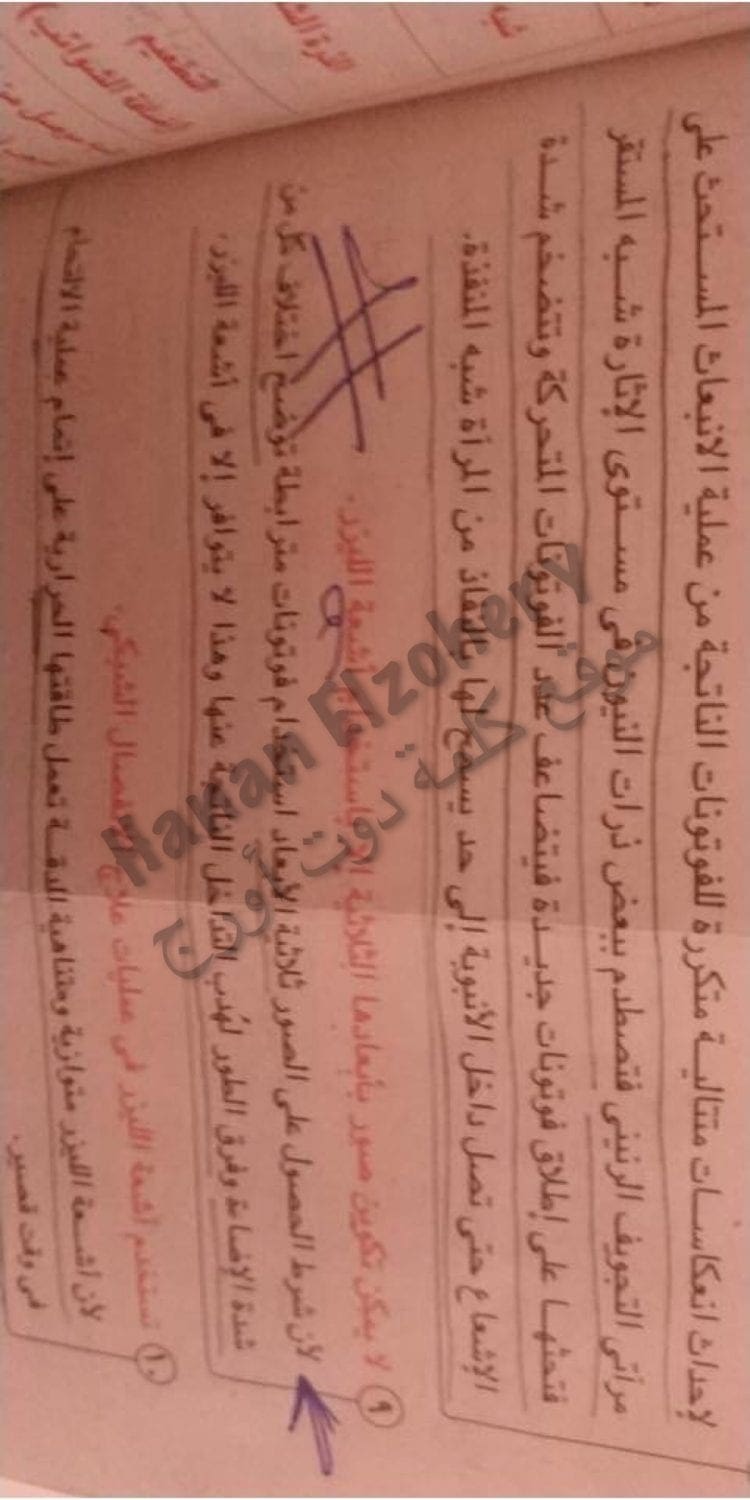 لإحداث انعكاسات متتالية متكررة للفوتونات الناتجة من عملية الانبعاث المستحث على
مرآتى التجويف الرنينى فتصطدم ببعض ذرات النيون فى مستوى الإثارة شبه المستقر
فتحثها على إطلاق فوتونات جديدة فيتضاعف عدد الفوتونات المتحركة وتتضخم شدة
الإشعاع حتى تصل داخل الأنبوبة إلى حد يسمح لها بالنفاذ من المرآة شبه المنفذة.
٩ لا يمكن تكوين صور بأبعادها الثلاثية إلا باستخدام أشعة الليزر.
لأن شرط الحصول على الصور ثلاثية الأبعاد استخدام فوتونات مترابطة توضح اختلاف كل من
شدة الإضاءة وفرق الطور لهدب التداخل الناتجة عنها وهذا لا يتوافر إلا فى أشعة الليزر.
١٠ تستخدم أشعة الليزر فى عمليات علاج الانفصال الشبكى.
لأن أشعة الليزر متوازية ومتناهية الدقة تعمل طاقتها الحرارية على إتمام عملية الالتحام
فى وقت قصير.
شبه
تطعيم
(إضافة الشوائب)
Hanan Elzohery
موقع كلمة دوت أورج